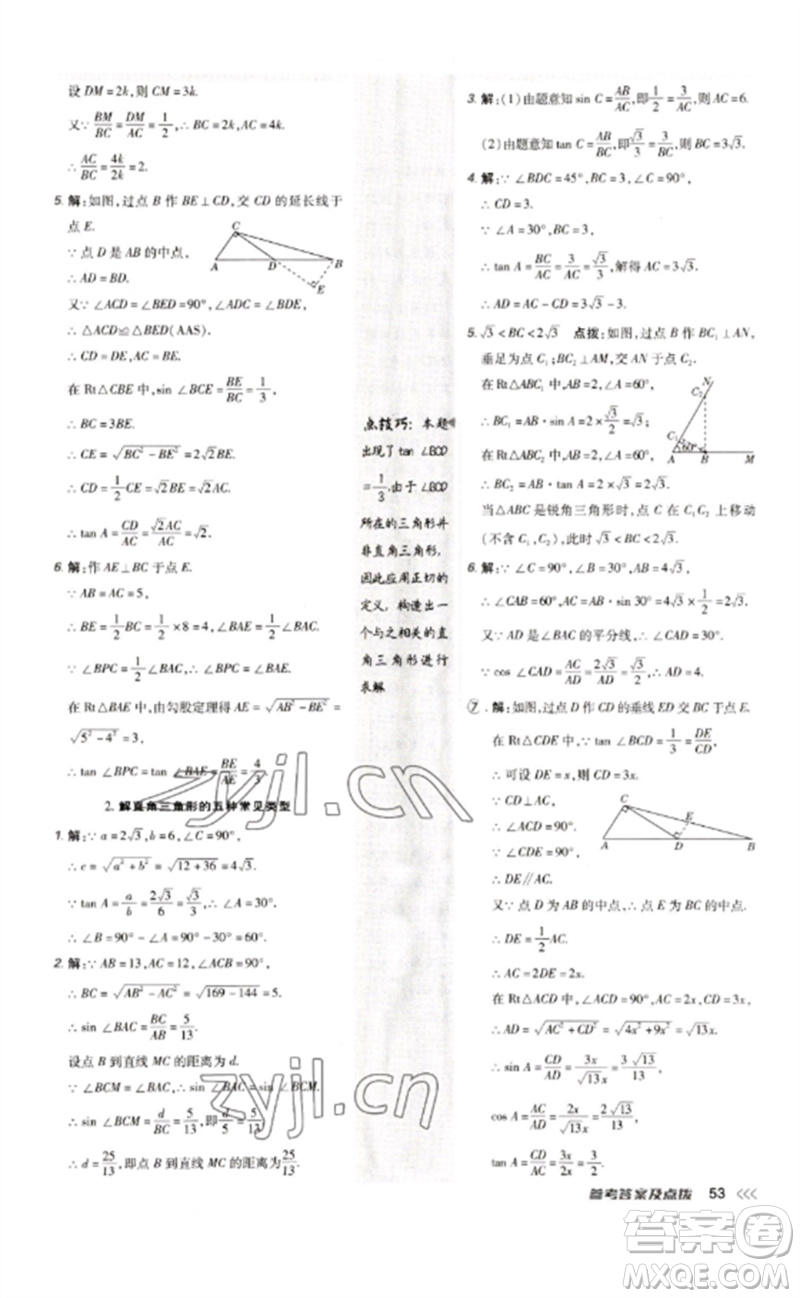 设 DM=2k,则 CM=3k.
又∵ BM/BC=DM/AC=1/2,∴ BC=2k,AC=4k.
∴ AC/BC=4k/2k=2.
5. 解:如图,过点 B 作 BE⊥CD,交 CD 的延长线于
点 E.
∵ 点 D 是 AB 的中点,
∴ AD=BD.
又∵ ∠ACD=∠BED=90°,∠ADC=∠BDE,
∴ △ACD≌△BED(AAS).
∴ CD=DE,AC=BE.
在 Rt△CBE 中,sin ∠BCE=BE/BC=1/3,
∴ BC=3BE.
∴ CE=√(BC²-BE²)=2√2BE.
∴ CD=1/2CE=√2BE=√2AC.
∴ tan A=CD/AC=√2AC/AC=√2.
6. 解:作 AE⊥BC 于点 E.
∵ AB=AC=5,
∴ BE=1/2BC=1/2×8=4,∠BAE=1/2∠BAC.
∵ ∠BPC=1/2∠BAC,∴ ∠BPC=∠BAE.
在 Rt△BAE 中,由勾股定理得 AE=√(AB²-BE²)=
√(5²-4²)=3,
∴ tan ∠BPC=tan ∠BAE=BE/AE=4/3.
2. 解直角三角形的五种常见类型
1. 解:∵ a=2√3,b=6,∠C=90°,
∴ c=√(a²+b²)=√(12+36)=4√3.
∵ tan A=a/b=2√3/6=√3/3,∴ ∠A=30°.
∴ ∠B=90°-∠A=90°-30°=60°.
2. 解:∵ AB=13,AC=12,∠ACB=90°,
∴ BC=√(AB²-AC²)=√(169-144)=5.
∴ sin ∠BAC=BC/AB=5/13.
设点 B 到直线 MC 的距离为 d.
∵ ∠BCM=∠BAC,∴ sin ∠BCM=sin ∠BAC.
∴ sin ∠BCM=d/BC=5/13,即d/5=5/13.
∴ d=25/13,即点 B 到直线 MC 的距离为25/13.
C
A D B
E
点技巧:本题
出现了 tan ∠BCD
=1/3,由于 ∠BCD
所在的三角形并
非直角三角形,
因此应用正切的
定义,构造出一
个与之相关的直
角三角形进行
求解
3. 解:(1)由题意知 sin C=AB/AC,即1/2=3/AC,则 AC=6.
(2)由题意知 tan C=AB/BC,即√3/3=3/BC,则 BC=3√3.
4. 解:∵ ∠BDC=45°,BC=3,∠C=90°,
∴ CD=3.
∵ ∠A=30°,BC=3,
∴ tan A=BC/AC=3/AC=√3/3,解得 AC=3√3.
∴ AD=AC-CD=3√3-3.
5. √3<BC<2√3 点拨:如图,过点 B 作 BC₁⊥AN,
垂足为点 C₁;BC₂⊥AM,交 AN 于点 C₂.
在 Rt△ABC₁ 中,AB=2,∠A=60°,
∴ BC₁=AB·sin A=2×√3/2=√3.
在 Rt△ABC₂ 中,AB=2,∠A=60°,
∴ BC₂=AB·tan A=2×√3=2√3.
当△ABC 是锐角三角形时,点 C 在 C₁C₂ 上移动
(不含 C₁,C₂),此时,√3<BC<2√3.
N
C₂
C₁
60°
A B M
6. 解:∵ ∠C=90°,∠B=30°,
∴ ∠CAB=60°,AC=1/2AB=1/2×4√3=2√3.
又∵ AD 是∠BAC 的平分线,∴ ∠CAD=30°.
∵ cos ∠CAD=AC/AD=2√3/AD=√3/2,∴ AD=4.
⑦. 解:如图,过点 D 作 CD 的垂线 ED 交 BC 于点 E.
在 Rt△CDE 中,∵ tan ∠BCD=1/3=DE/CD,
∴ 可设 DE=x,则 CD=3x.
∵ CD⊥AC,
∴ ∠ACD=90°.
又∵ ∠CDE=90°,
∴ DE∥AC.
又∵ 点 D 为 AB 的中点,
∴ DE=1/2AC.
∴ AC=2DE=2x.
在 Rt△ACD 中,∵ ∠ACD=90°,AC=2x,CD=3x,
∴ AD=√(AC²+CD²)=√(4x²+9x²)=√13x.
∴ sin A=CD/AD=3x/√13x=3√13/13,
cos A=AC/AD=2x/√13x=2√13/13,
tan A=CD/AC=3x/2x=3/2.
C
E
A D B
参考答案及点拨 53
zyjl.cn
zyjl.cn
答案圈
MXQE.COM